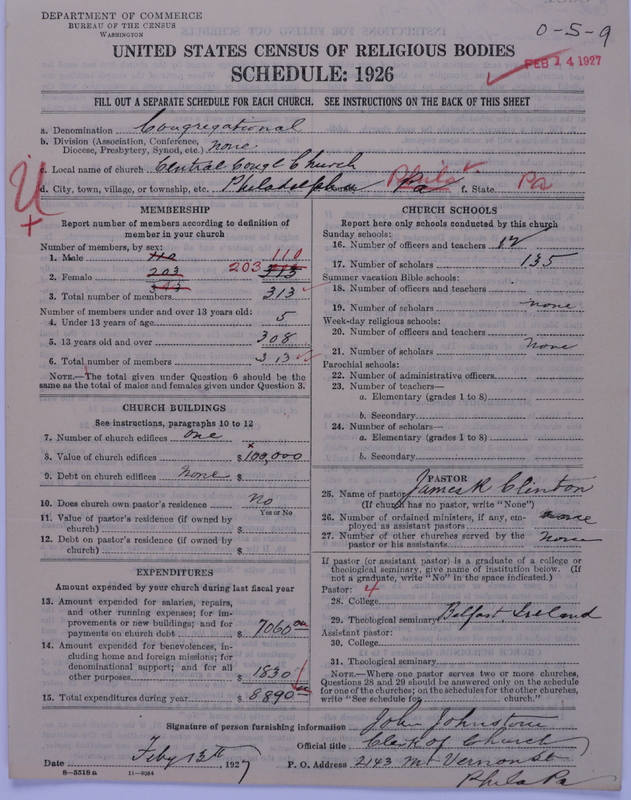 DEPARTMENT OF COMMERCE
BUREAU OF THE CENSUS
WASHINGTON
0-5-9
UNITED STATES CENSUS OF RELIGIOUS BODIES
FEB 14 1927
SCHEDULE: 1926
FILL OUT A SEPARATE SCHEDULE FOR EACH CHURCH. SEE INSTRUCTIONS ON THE BACK OF THIS SHEET
a. Denomination Congregational
b. Division (Association, Conference,
Diocese, Presbytery, Synod, etc.) none
c. Local name of church Central Congl Church
d. City, town, village, or township, etc. Philadelphia Phila Pa f. State Pa
MEMBERSHIP
Report number of members according to definition of
member in your church
Number of members, by sex:
1. Male 110 110
2. Female 203 203 313
313
3. Total number of members 313
Number of members under and over 13 years old:
4. Under 13 years of age 5
5. 13 years old and over 308
6. Total number of members 313
NOTE.—The total given under Question 6 should be the
same as the total of males and females given under Question 3.
CHURCH BUILDINGS
See instructions, paragraphs 10 to 12
7. Number of church edifices one
8. Value of church edifices $100,000
9. Debt on church edifices None $
10. Does church own pastor's residence no
Yes or No
11. Value of pastor's residence (if owned by
church) $
12. Debt on pastor's residence (if owned by
church) $
EXPENDITURES
Amount expended by your church during last fiscal year
13. Amount expended for salaries, repairs,
and other running expenses; for im-
provements or new buildings; and for
payments on church debt $ 7060 00
14. Amount expended for benevolences, in-
cluding home and foreign missions; for
denominational support; and for all
other purposes $ 1830
15. Total expenditures during year $ 8890 00
CHURCH SCHOOLS
Report here only schools conducted by this church
Sunday schools:
16. Number of officers and teachers 12
17. Number of scholars 135
Summer vacation Bible schools:
18. Number of officers and teachers
19. Number of scholars none
Week-day religious schools:
20. Number of officers and teachers
21. Number of scholars none
Parochial schools:
22. Number of administrative officers
23. Number of teachers—
a. Elementary (grades 1 to 8)
b. Secondary
24. Number of scholars—
a. Elementary (grades 1 to 8)
b. Secondary
PASTOR
25. Name of pastor James R Clinton
(If church has no pastor, write "None")
26. Number of ordained ministers, if any, em-
ployed as assistant pastors none
27. Number of other churches served by the
pastor or his assistants none
If pastor (or assistant pastor) is a graduate of a college or
theological seminary, give name of institution below. (If
not a graduate, write "No" in the space indicated.)
Pastor: 4
28. College
29. Theological seminary Belfast Ireland
Assistant pastor:
30. College
31. Theological seminary
NOTE.—Where one pastor serves two or more churches,
Questions 28 and 29 should be answered only on the schedule
for one of the churches; on the schedules for the other churches,
write "See schedule for church."
Signature of person furnishing information John Johnstone
Official title Clerk of Church
Date Feby 13th 1927 P. O. Address 2143 Mt Vernon St
8—5518 a 11—9084 Phila Pa